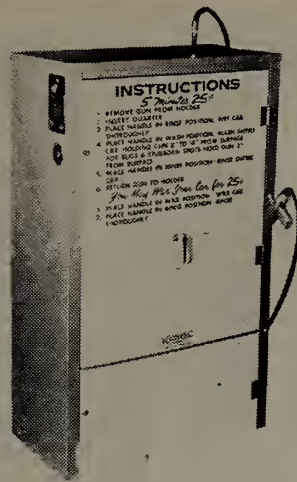 INSTRUCTIONS
5 Minutes 25¢
1 REMOVE GUN FROM HOLDER
2 INSERT QUARTER
3 PLACE HANDLE IN RINSE POSITION, WET CAR
THOROUGHLY
4 PLACE HANDLE IN WASH POSITION, WASH ENTIRE
CAR HOLDING GUN 8" TO 12" FROM SURFACE
FOR BUGS & STUBBORN SPOTS HOLD GUN 2"
FROM SURFACE
5 PLACE HANDLE IN RINSE POSITION, RINSE ENTIRE
CAR
6 RETURN GUN TO HOLDER
You May Wax Your Car for 25¢
1 PLACE HANDLE IN WAX POSITION, WAX CAR
2 PLACE HANDLE IN RINSE POSITION, RINSE
THOROUGHLY